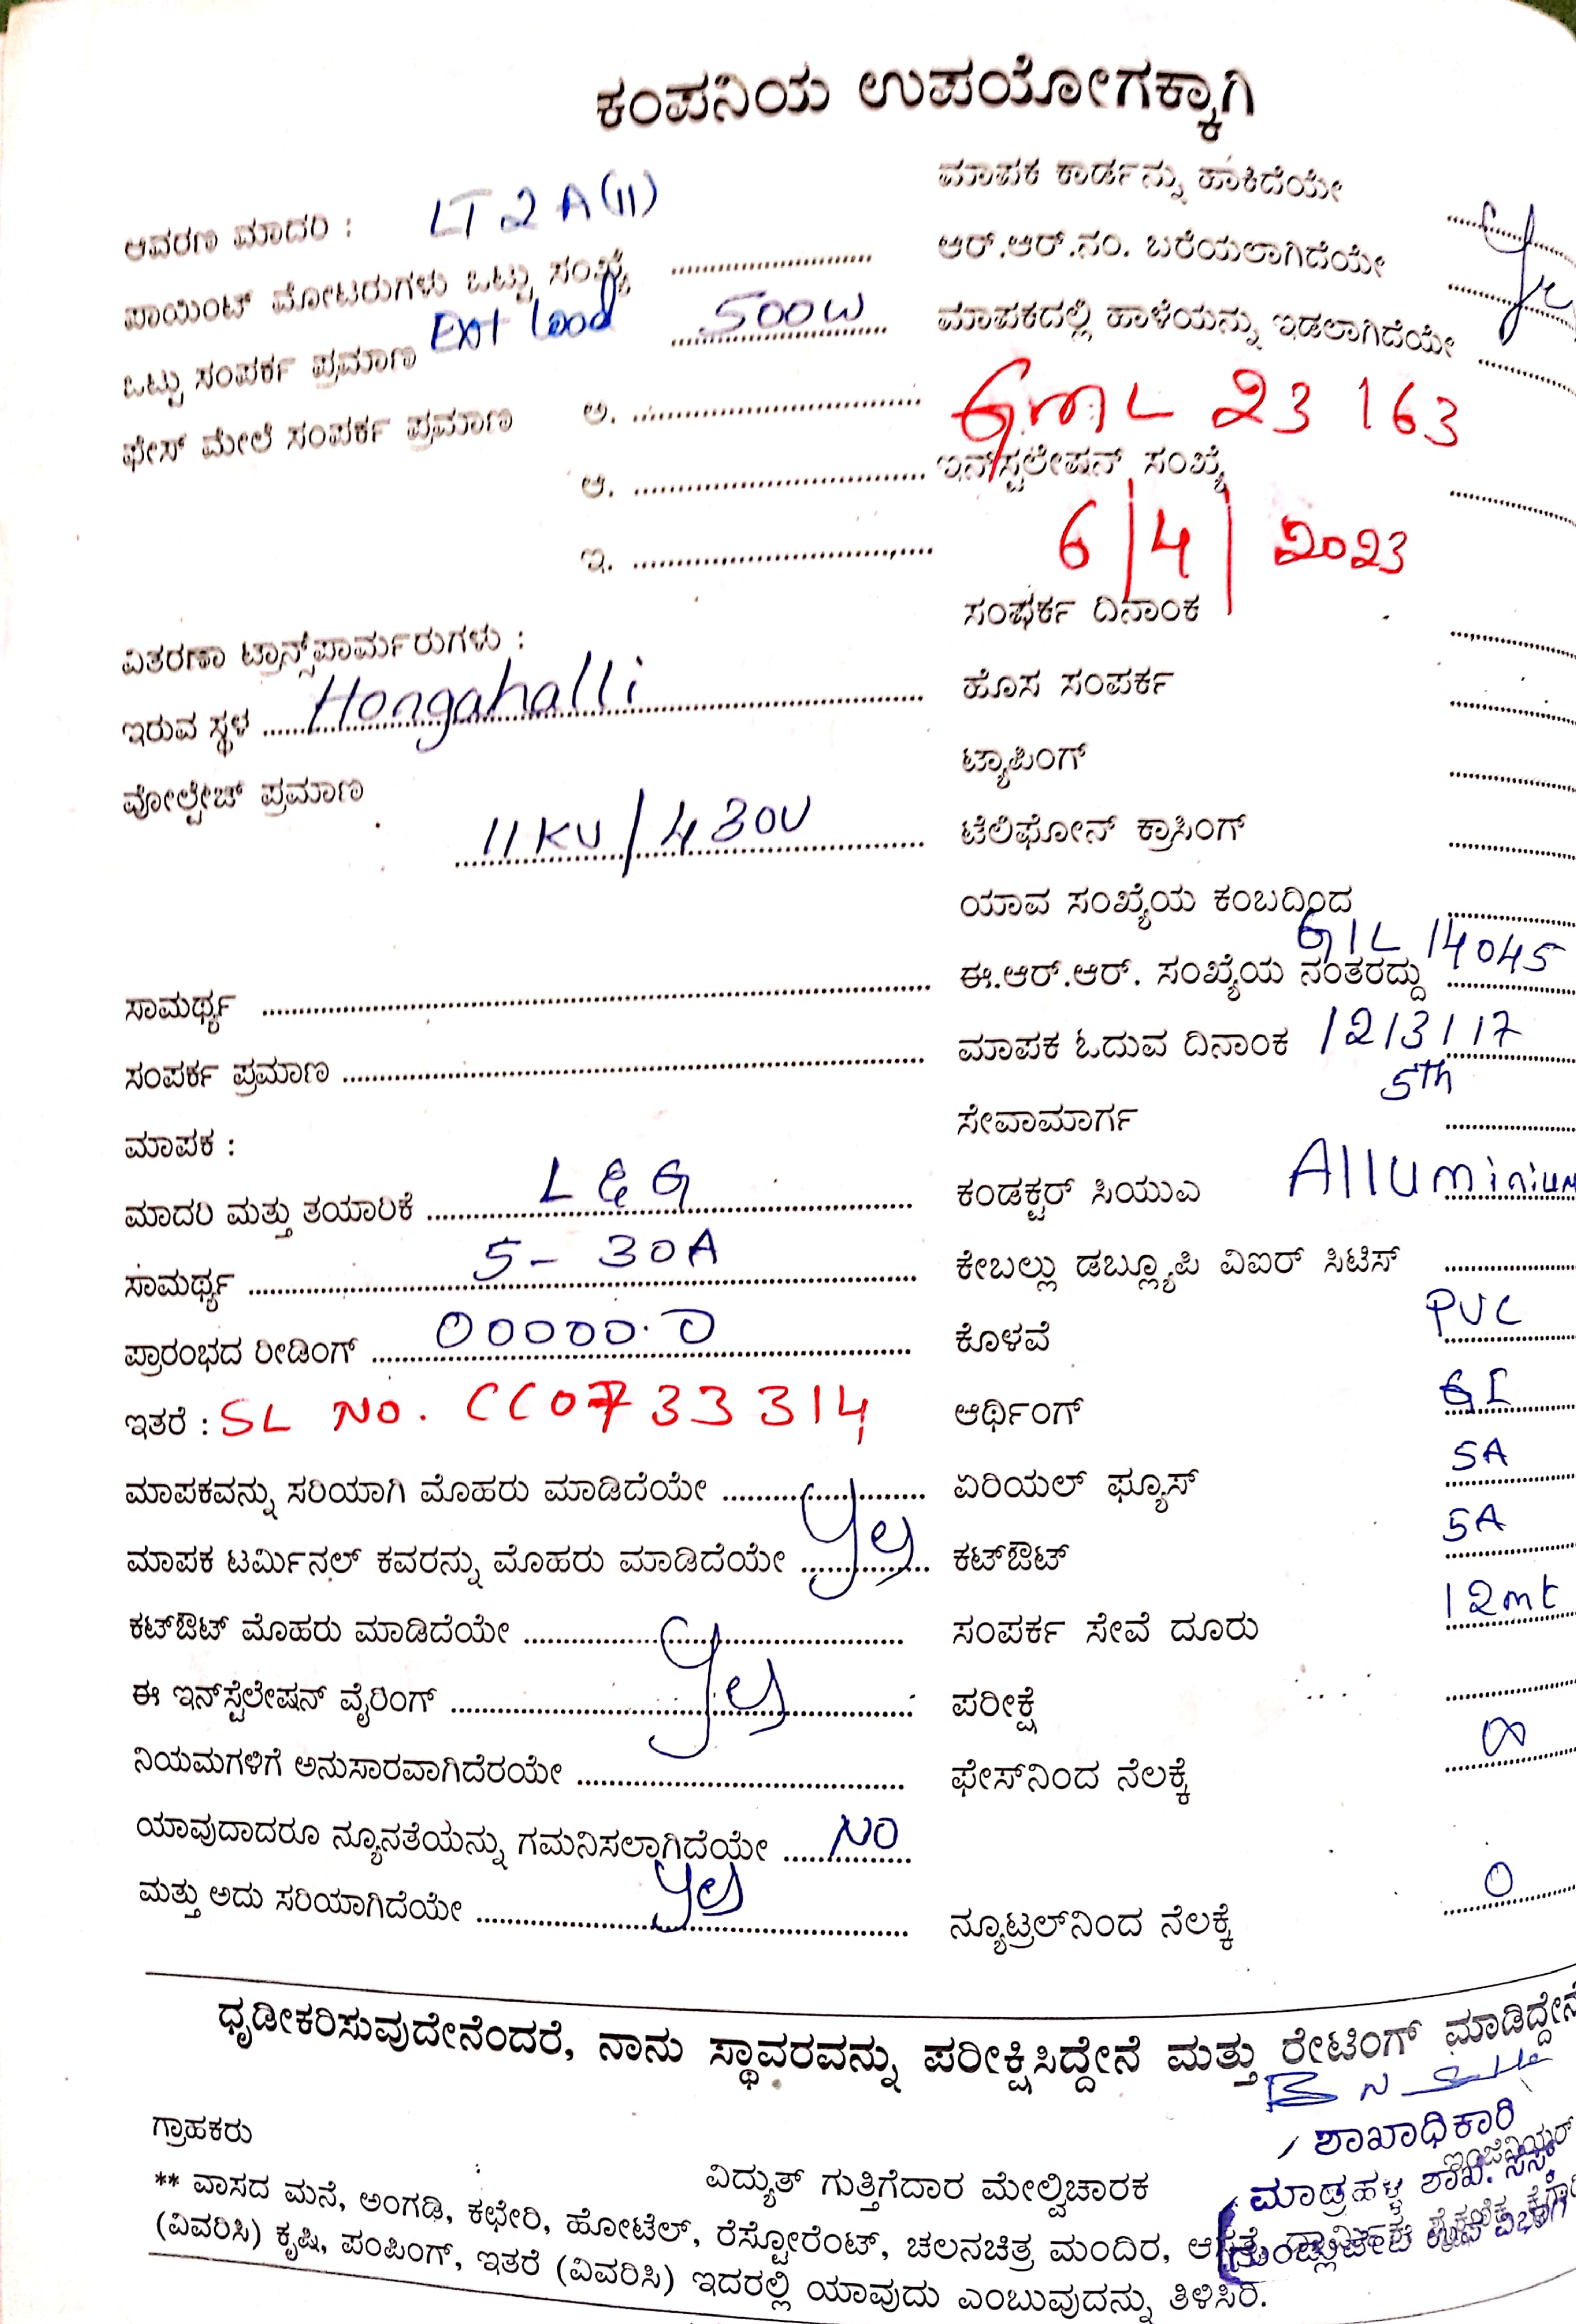 ಕಂಪನಿಯ ಉಪಯೋಗಕ್ಕಾಗಿ
ಆವರಣ ಮಾದರಿ : LT 2 A (11)
ಪಾಯಿಂಟ್ ಮೋಟರುಗಳು ಒಟ್ಟು ಸಂಖ್ಯೆ
ಒಟ್ಟು ಸಂಪರ್ಕ ಪ್ರಮಾಣ Ext load 500W
ಫೇಸ್ ಮೇಲೆ ಸಂಪರ್ಕ ಪ್ರಮಾಣ ಅ.
ಆ.
ಇ.
ವಿತರಣಾ ಟ್ರಾನ್ಸ್‌ಪಾರ್ಮರುಗಳು :
ಇರುವ ಸ್ಥಳ Hongahalli
ವೋಲ್ಟೇಚ್ ಪ್ರಮಾಣ
11KV/430V
ಸಾಮರ್ಥ್ಯ
ಸಂಪರ್ಕ ಪ್ರಮಾಣ
ಮಾಪಕ :
ಮಾದರಿ ಮತ್ತು ತಯಾರಿಕೆ L & G
ಸಾಮರ್ಥ್ಯ 5 - 30A
ಪ್ರಾರಂಭದ ರೀಡಿಂಗ್ 00000.0
ಇತರೆ : SL NO. CC0733314
ಮಾಪಕವನ್ನು ಸರಿಯಾಗಿ ಮೊಹರು ಮಾಡಿದೆಯೇ
ಮಾಪಕ ಟರ್ಮಿನಲ್ ಕವರನ್ನು ಮೊಹರು ಮಾಡಿದೆಯೇ Yes
ಕಟ್‌ಔಟ್ ಮೊಹರು ಮಾಡಿದೆಯೇ
ಈ ಇನ್‌ಸ್ಟೆಲೇಷನ್ ವೈರಿಂಗ್ Yes
ನಿಯಮಗಳಿಗೆ ಅನುಸಾರವಾಗಿದೆರಯೇ
ಯಾವುದಾದರೂ ನ್ಯೂನತೆಯನ್ನು ಗಮನಿಸಲಾಗಿದೆಯೇ NO
ಮತ್ತು ಅದು ಸರಿಯಾಗಿದೆಯೇ Yes
ಮಾಪಕ ಕಾರ್ಡನ್ನು ಹಾಕಿದೆಯೇ
ಆರ್.ಆರ್.ನಂ. ಬರೆಯಲಾಗಿದೆಯೇ
ಮಾಪಕದಲ್ಲಿ ಹಾಳೆಯನ್ನು ಇಡಲಾಗಿದೆಯೇ
GML 23 163
ಇನ್‌ಸ್ಟಲೇಷನ್ ಸಂಖ್ಯೆ
6/4/2023
ಸಂಪರ್ಕ ದಿನಾಂಕ
ಹೊಸ ಸಂಪರ್ಕ
ಟ್ಯಾಪಿಂಗ್
ಟೆಲಿಫೋನ್ ಕ್ರಾಸಿಂಗ್
ಯಾವ ಸಂಖ್ಯೆಯ ಕಂಬದಿಂದ
ಈ.ಆರ್.ಆರ್. ಸಂಖ್ಯೆಯ ನಂತರದ್ದು GIL 14045
ಮಾಪಕ ಓದುವ ದಿನಾಂಕ 12/3/17
5th
ಸೇವಾಮಾರ್ಗ
ಕಂಡಕ್ಟರ್ ಸಿಯುಎ Alluminium
ಕೇಬಲ್ಲು ಡಬ್ಲ್ಯೂಪಿ ವಿಐರ್ ಸಿಟಿಸ್
ಕೊಳವೆ PVC
ಆರ್ಥಿಂಗ್ GI
ಏರಿಯಲ್ ಫ್ಯೂಸ್ 5A
ಕಟ್‌ಔಟ್ 5A
ಸಂಪರ್ಕ ಸೇವೆ ದೂರು 12mt
ಪರೀಕ್ಷೆ
ಫೇಸ್‌ನಿಂದ ನೆಲಕ್ಕೆ ∞
ನ್ಯೂಟ್ರಲ್‌ನಿಂದ ನೆಲಕ್ಕೆ 0
ಧೃಡೀಕರಿಸುವುದೇನೆಂದರೆ, ನಾನು ಸ್ಥಾವರವನ್ನು ಪರೀಕ್ಷಿಸಿದ್ದೇನೆ ಮತ್ತು ರೇಟಿಂಗ್ ಮಾಡಿದ್ದೇನೆ
ಶಾಖಾಧಿಕಾರಿ
ಗ್ರಾಹಕರು ವಿದ್ಯುತ್ ಗುತ್ತಿಗೆದಾರ ಮೇಲ್ವಿಚಾರಕ ಇಂಜಿನಿಯರ್
** ವಾಸದ ಮನೆ, ಅಂಗಡಿ, ಕಛೇರಿ, ಹೋಟೆಲ್, ರೆಸ್ಟೋರೆಂಟ್, ಚಲನಚಿತ್ರ ಮಂದಿರ,
(ವಿವರಿಸಿ) ಕೃಷಿ, ಪಂಪಿಂಗ್, ಇತರೆ (ವಿವರಿಸಿ) ಇದರಲ್ಲಿ ಯಾವುದು ಎಂಬುವುದನ್ನು ತಿಳಿಸಿರಿ.